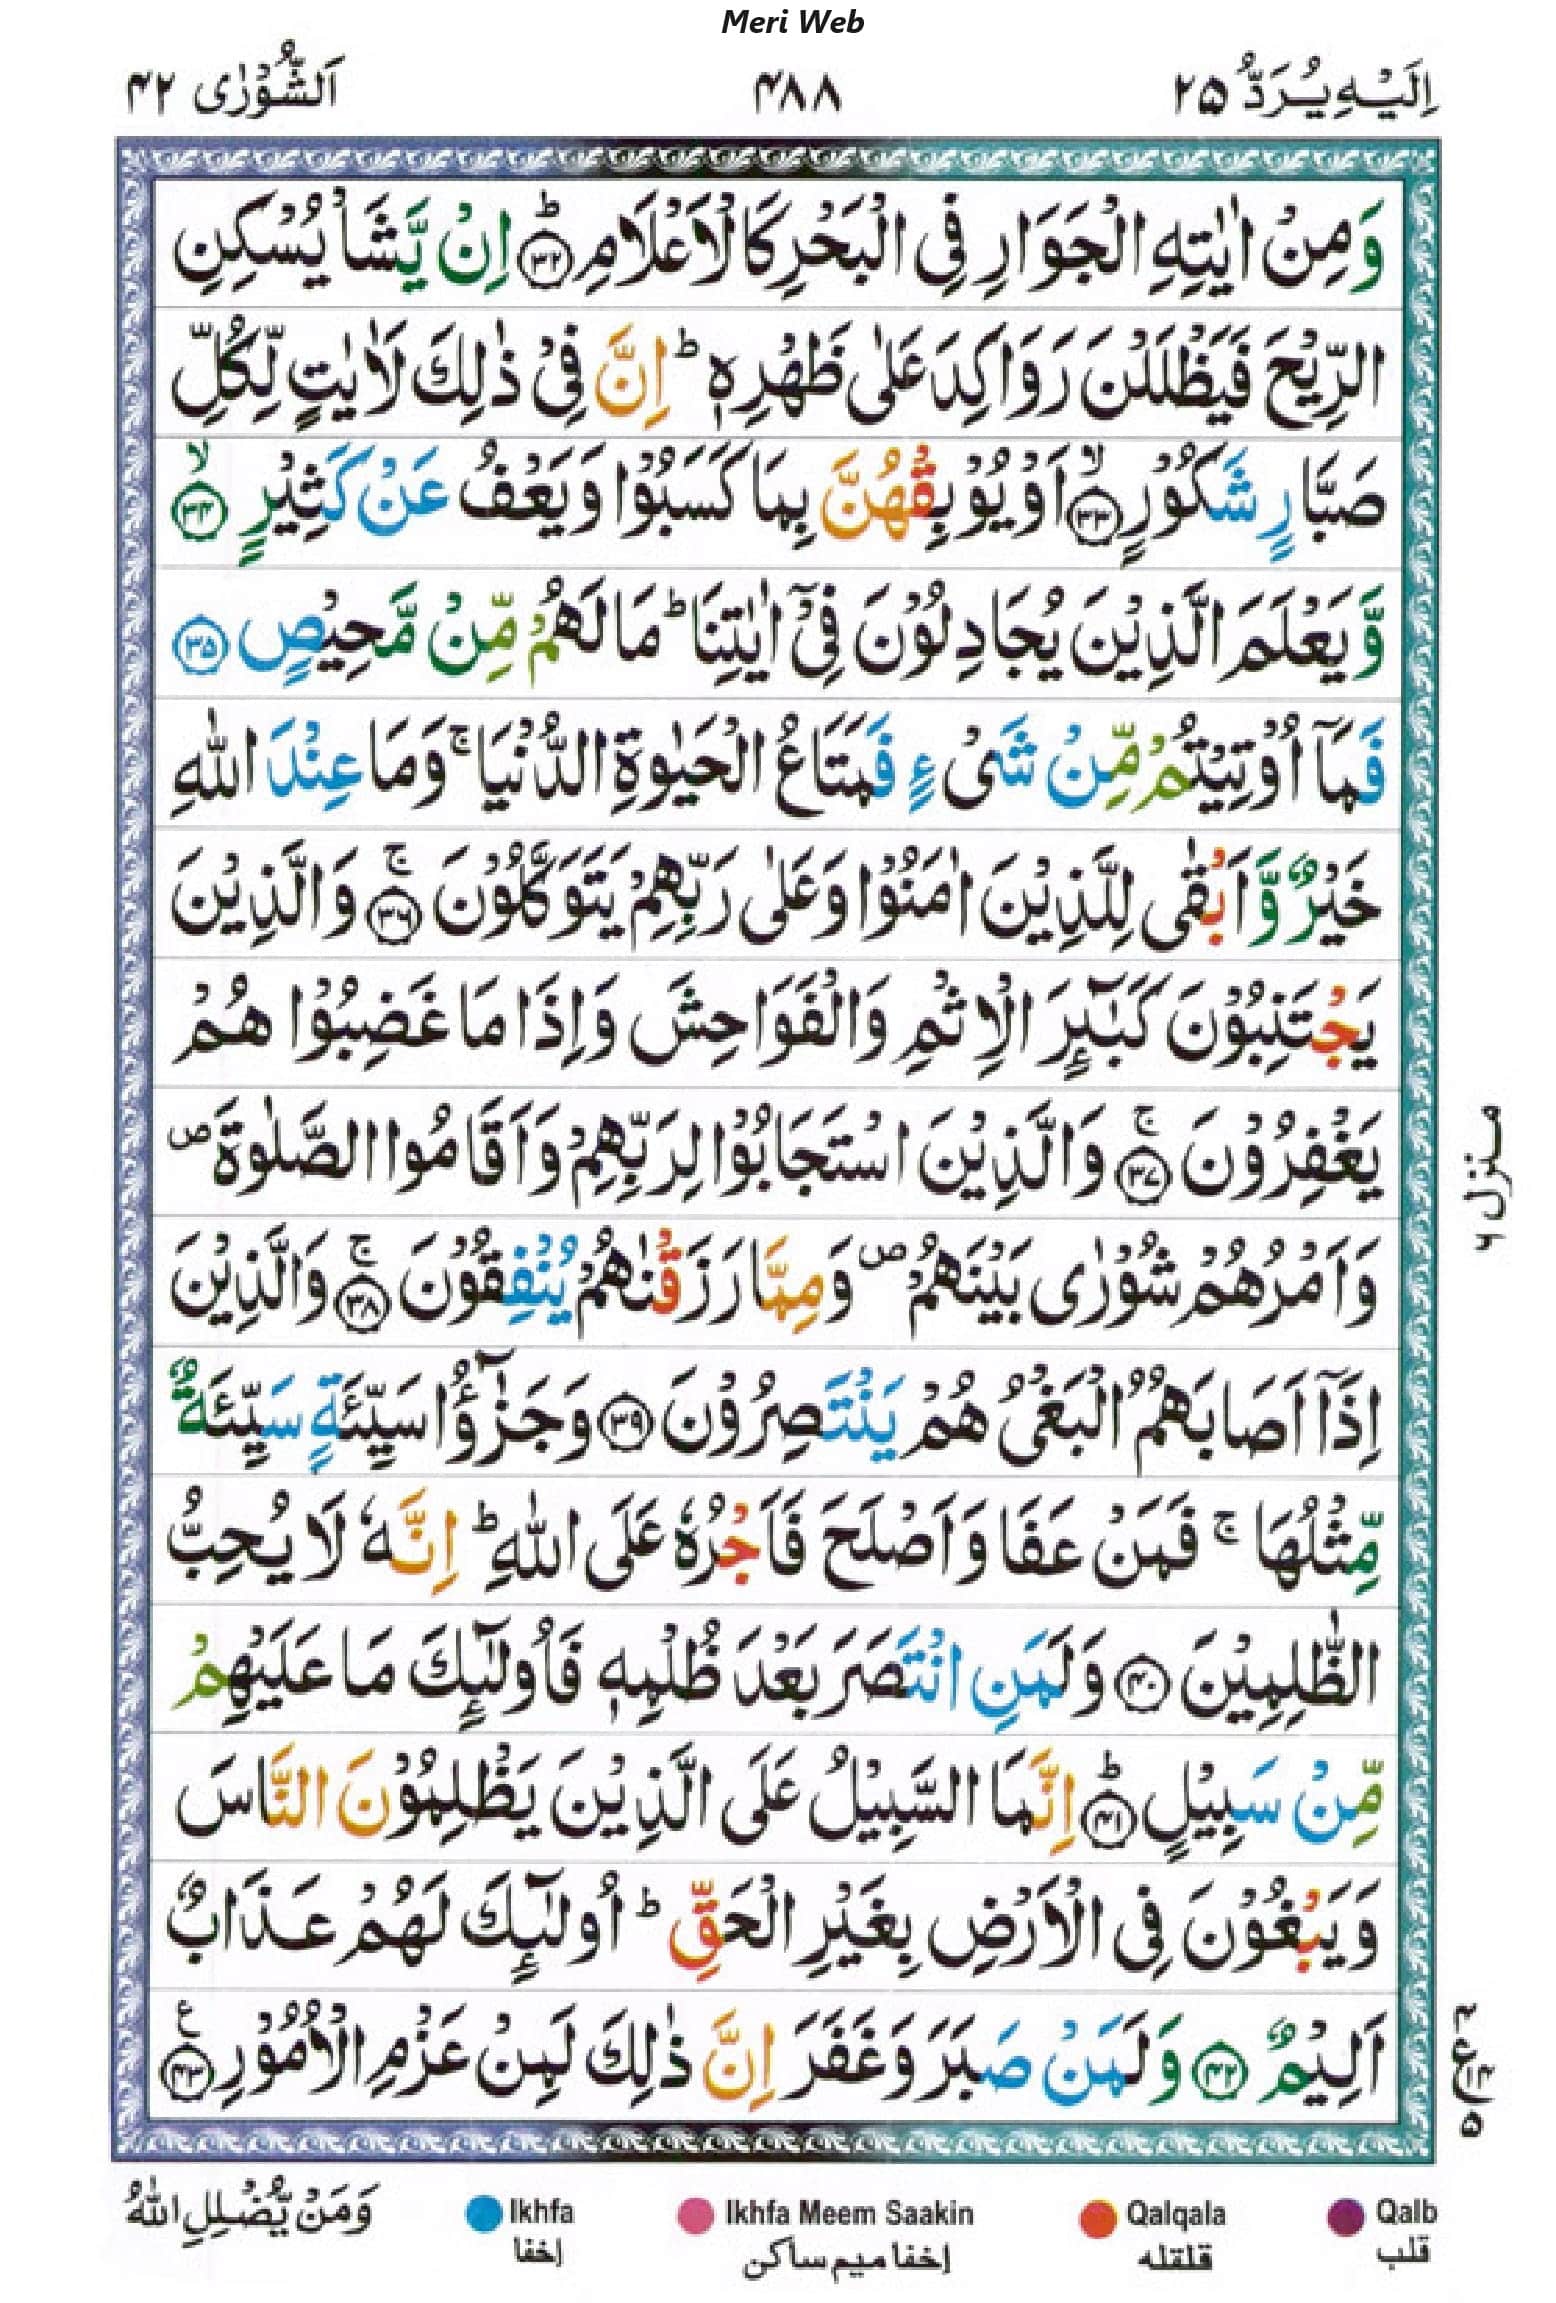 Meri Web
اِلَيْهِ يُرَدُّ ۲۵
۴۸۸
اَلشُّوْرٰى ۴۲
وَمِنْ اٰيٰتِهِ الْجَوَارِ فِى الْبَحْرِ كَالْاَعْلَامِ ؕ‏﴿۳۲﴾ اِنْ يَّشَاْ يُسْكِنِ
الرِّيْحَ فَيَظْلَلْنَ رَوَاكِدَ عَلٰى ظَهْرِهٖ ؕ اِنَّ فِىْ ذٰلِكَ لَاٰيٰتٍ لِّكُلِّ
صَبَّارٍ شَكُوْرٍ ۙ‏﴿۳۳﴾ اَوْ يُوْبِقْهُنَّ بِمَا كَسَبُوْا وَيَعْفُ عَنْ كَثِيْرٍ ۙ‏﴿۳۴﴾
وَّيَعْلَمَ الَّذِيْنَ يُجَادِلُوْنَ فِىْٓ اٰيٰتِنَا ؕ مَا لَهُمْ مِّنْ مَّحِيْصٍ ﴿۳۵﴾
فَمَآ اُوْتِيْتُمْ مِّنْ شَىْءٍ فَمَتَاعُ الْحَيٰوةِ الدُّنْيَا ۚ وَمَا عِنْدَ اللّٰهِ
خَيْرٌ وَّاَبْقٰى لِلَّذِيْنَ اٰمَنُوْا وَعَلٰى رَبِّهِمْ يَتَوَكَّلُوْنَ ۚ‏﴿۳۶﴾ وَالَّذِيْنَ
يَجْتَنِبُوْنَ كَبٰٓئِرَ الْاِثْمِ وَالْفَوَاحِشَ وَاِذَا مَا غَضِبُوْا هُمْ
يَغْفِرُوْنَ ۚ‏﴿۳۷﴾ وَالَّذِيْنَ اسْتَجَابُوْا لِرَبِّهِمْ وَاَقَامُوا الصَّلٰوةَ ص
وَاَمْرُهُمْ شُوْرٰى بَيْنَهُمْ ص وَمِمَّا رَزَقْنٰهُمْ يُنْفِقُوْنَ ۚ‏﴿۳۸﴾ وَالَّذِيْنَ
اِذَآ اَصَابَهُمُ الْبَغْىُ هُمْ يَنْتَصِرُوْنَ ﴿۳۹﴾ وَجَزٰٓؤُا سَيِّئَةٍ سَيِّئَةٌ
مِّثْلُهَا ۚ فَمَنْ عَفَا وَاَصْلَحَ فَاَجْرُهٗ عَلَى اللّٰهِ ؕ اِنَّهٗ لَا يُحِبُّ
الظّٰلِمِيْنَ ﴿۴۰﴾ وَلَمَنِ انْتَصَرَ بَعْدَ ظُلْمِهٖ فَاُولٰٓئِكَ مَا عَلَيْهِمْ
مِّنْ سَبِيْلٍ ؕ‏﴿۴۱﴾ اِنَّمَا السَّبِيْلُ عَلَى الَّذِيْنَ يَظْلِمُوْنَ النَّاسَ
وَيَبْغُوْنَ فِى الْاَرْضِ بِغَيْرِ الْحَقِّ ؕ اُولٰٓئِكَ لَهُمْ عَذَابٌ
اَلِيْمٌ ﴿۴۲﴾ وَلَمَنْ صَبَرَ وَغَفَرَ اِنَّ ذٰلِكَ لَمِنْ عَزْمِ الْاُمُوْرِ ع ﴿۴۳﴾
منزل ۶
وَمَنْ يُّضْلِلِ اللّٰهُ
Ikhfa
إخفا
Ikhfa Meem Saakin
إخفا ميم ساكن
Qalqala
قلقله
Qalb
قلب